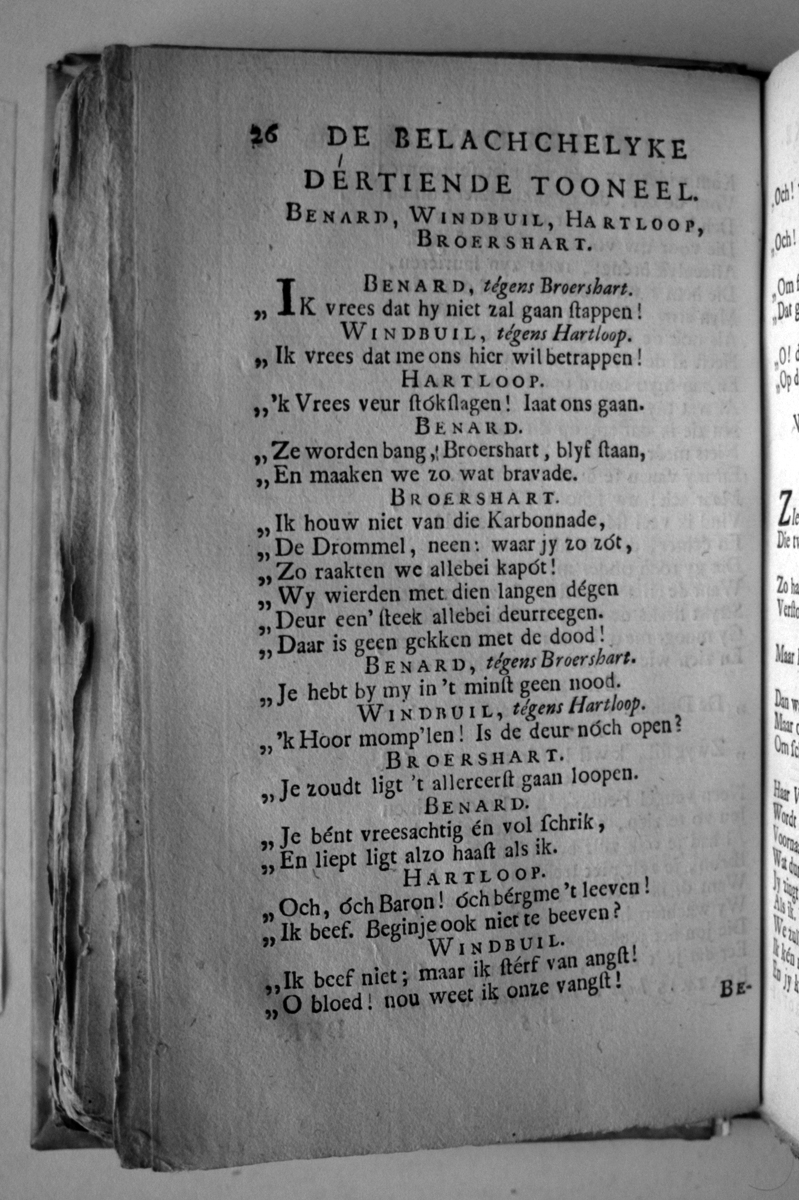 26 DE BELACHCHELYKE
DÉRTIENDE TOONEEL.
BENARD, WINDBUIL, HARTLOOP,
BROERSHART.
BENARD, tégens Broershart.
„ IK vrees dat hy niet zal gaan ſtappen!
WINDBUIL, tégens Hartloop.
„ Ik vrees dat me ons hier wil betrappen!
HARTLOOP.
„'k Vrees veur ſtókſlagen! laat ons gaan.
BENARD.
„Ze worden bang, Broershart, blyf ſtaan,
„En maaken we zo wat bravade.
BROERSHART.
„Ik houw niet van die Karbonnade,
„De Drommel, neen: waar jy zo zót,
„Zo raakten we allebei kapót!
„Wy wierden met dien langen dégen
„Deur een' ſteek allebei deurreegen.
„Daar is geen gekken met de dood!
BENARD, tégens Broershart.
„Je hebt by my in 't minſt geen nood.
WINDBUIL, tégens Hartloop.
„'k Hoor momp'len! Is de deur nóch open?
BROERSHART.
„Je zoudt ligt 't allereerſt gaan loopen.
BENARD.
„Je bént vreesachtig én vol ſchrik,
„En liept ligt alzo haaſt als ik.
HARTLOOP.
„Och, óch Baron! óch bérg me 't leeven!
„Ik beef. Begin je ook niet te beeven?
WINDBUIL.
„Ik beef niet; maar ik ſtérf van angſt!
„O bloed! nou weet ik onze vangſt!
BE-
„Och!
„Och!
„Om
„Dat
„O!
„Op
Die
Zo
Maar
Dan
Maar
Om
Haar
Wordt
Wat
Jy
Als ik
We
Ik kén
En jy